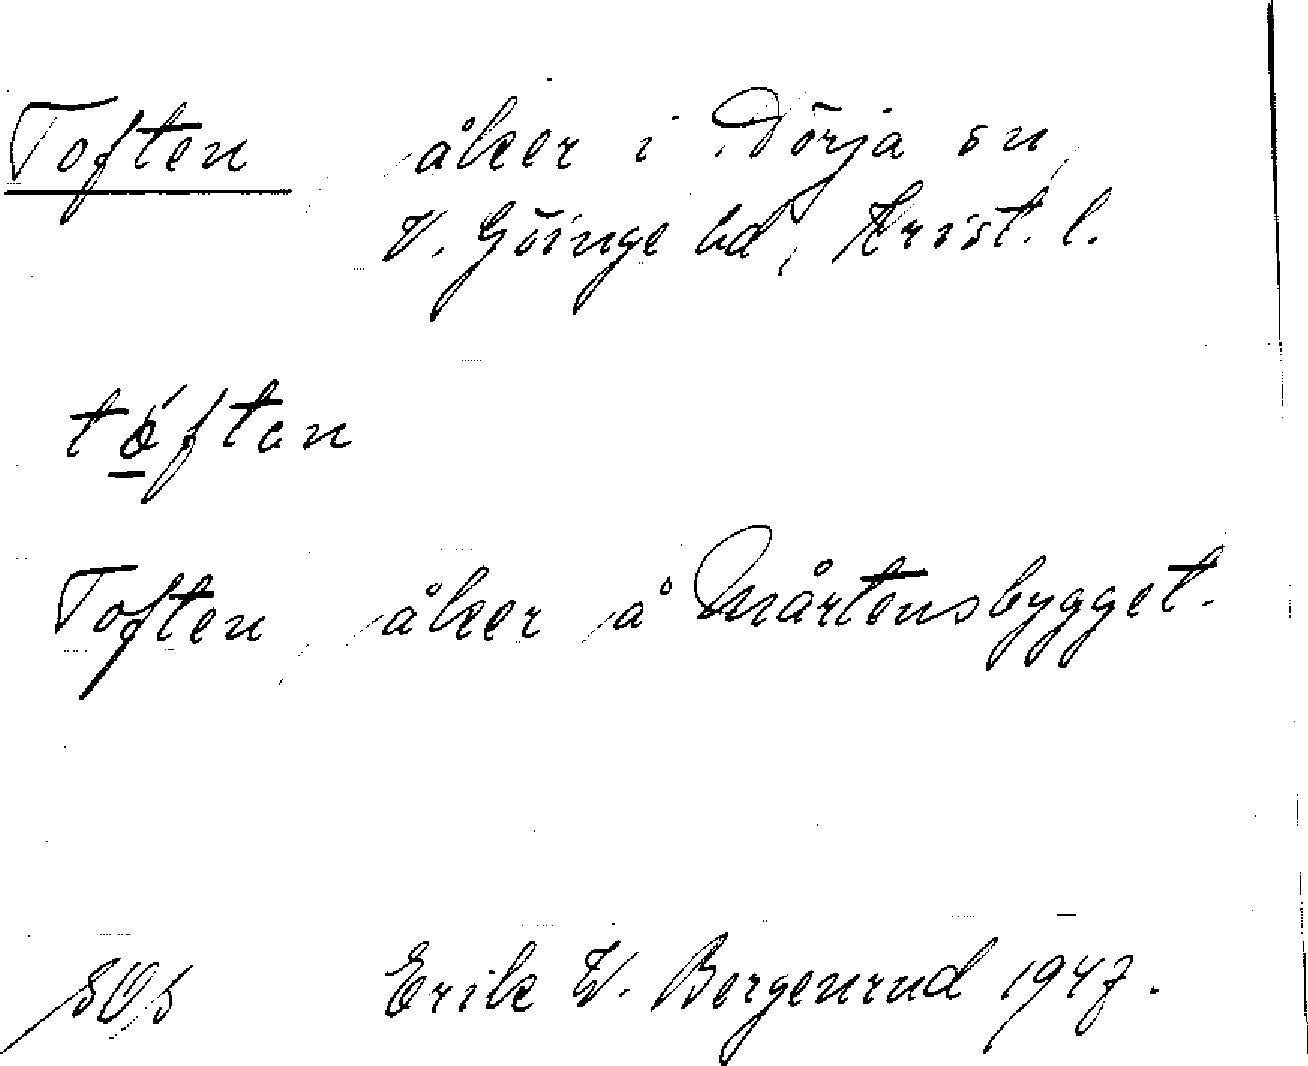 Toften, åker i Dörja sn,
V. Göinge hd, Krist. l.
tóften
Toften, åker å Mårtensbygget.
Erik W. Bergenrud 1947.